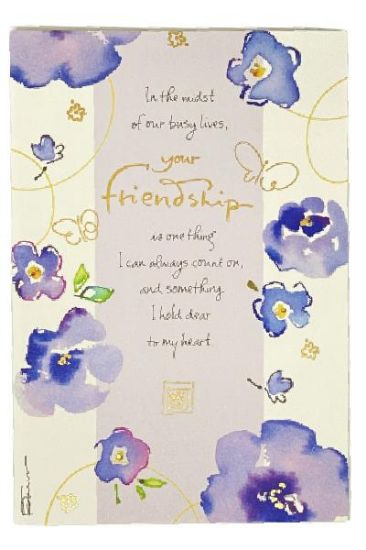 In the midst
of our busy lives,
your
friendship
is one thing
I can always count on,
and something
I hold dear
to my heart.